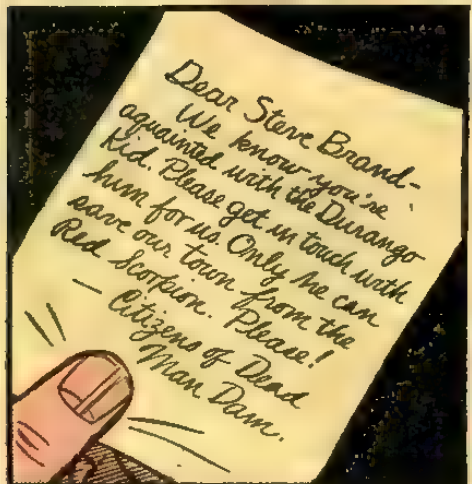 Dear Steve Brand-
We know you're
aquainted with the Durango
Kid. Please get in touch with
him for us. Only he can
save our town from the
Red Scorpion. Please!
— Citizens of Dead
Man Dam.